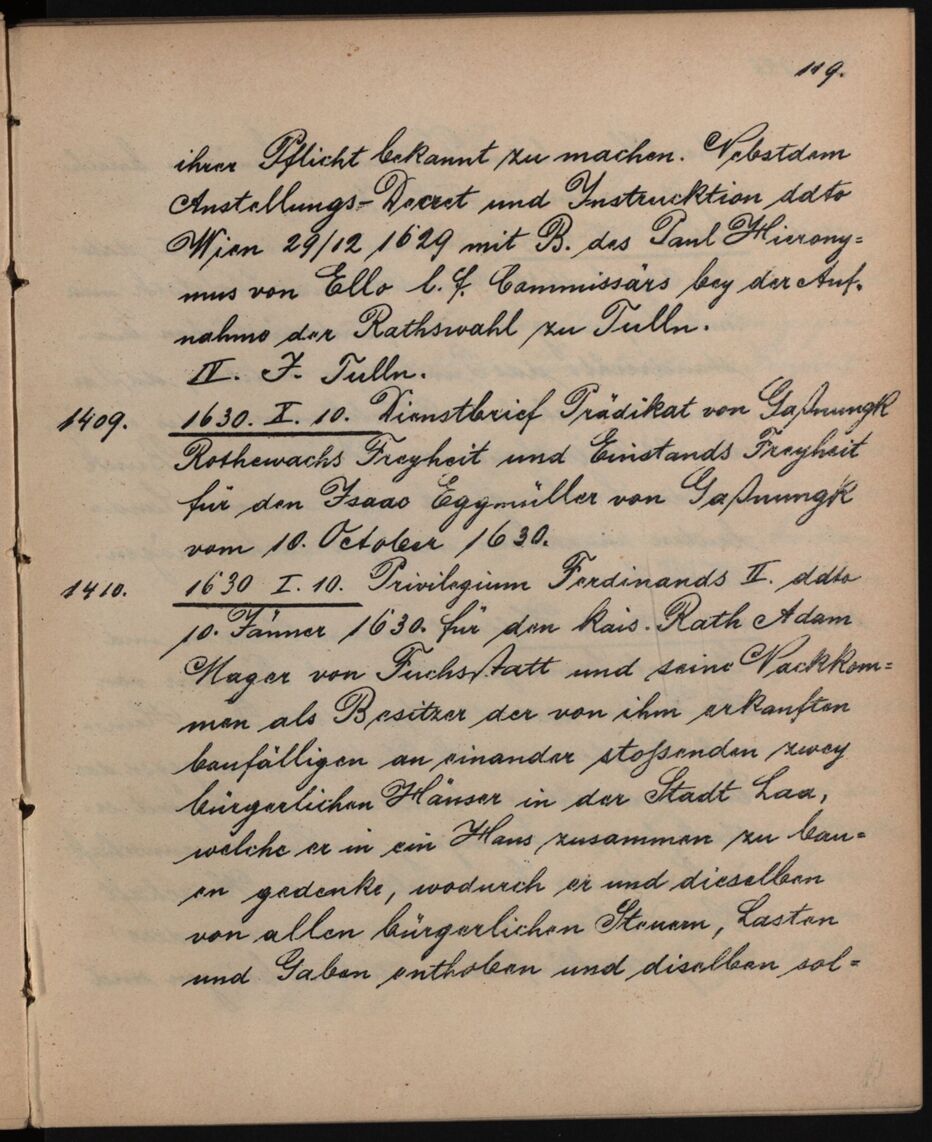 119.
ihrer Pflicht bekannt zu machen. Nebstdem
Anstellungs-Decret und Instrucktion ddto
Wien 29/12 1629 mit B. des Paul Hierony=
mus von Ello l. f. Commissärs bey der Auf-
nahme der Rathswahl zu Tulln.
IV. J. Tulln.
1409. 1630. X. 10. Dienstbrief Prädikat von Gaßnungk
Rothewachs Freyheit und Einstands Freyheit
für den Isaac Eggmüller von Gaßnungk
vom 10. October 1630.
1410. 1630 I. 10. Privilegium Ferdinands II. ddto
10. Jänner 1630. für den kais. Rath Adam
Mager von Fuchsstatt und seine Nackkom=
men als Besitzer der von ihm erkauften
baufälligen an einander stoßenden zwey
bürgerlichen Häuser in der Stadt Laa,
welche er in ein Haus zusammen zu bau=
en gedenke, wodurch er und dieselben
von allen bürgerlichen Steuern, Lasten
und Gaben enthoben und diselben sol=